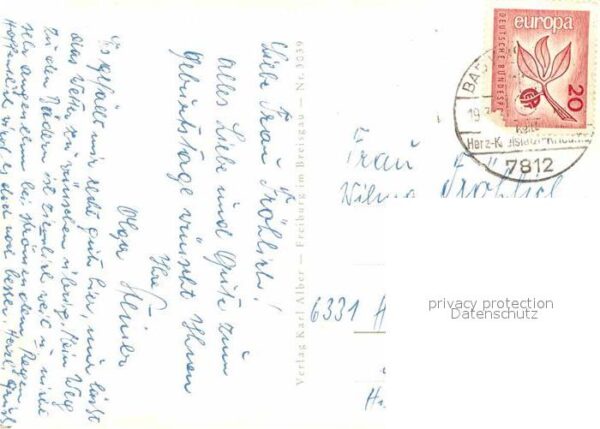 Liebe Frau Fröhlich!
Alles Liebe und Gute zum
Geburtstage wünscht Ihnen
Ihre
Olga
Es gefällt mir sehr gut hier, nur lässt
das Wetter zu wünschen übrig. Mein Weg
zu den Bädern ist ziemlich weit u. nicht
sehr angenehm bei strömendem Regen.
Hoffentlich wird es doch noch besser. Herzl. Grüße
Verlag Karl Alber — Freiburg im Breisgau — Nr. 3039
europa
DEUTSCHE BUNDESPOST
20
CEPT
BAD
19.
Herz-Kreislauf-Rheuma
7812
Frau
Wilma Fröhlich
6331 H
privacy protection
Datenschutz